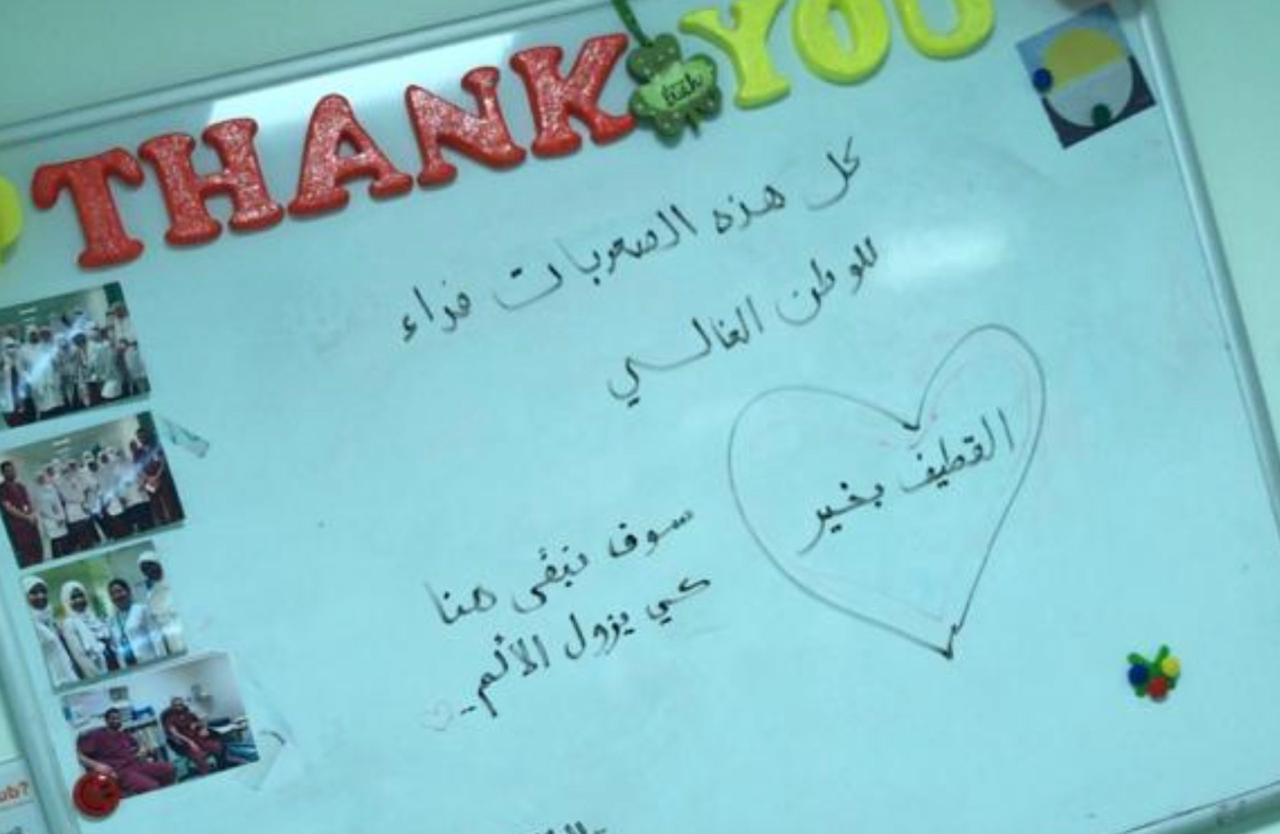 THANK YOU
كل هذه الصعوبات فداء
للوطن الغالي
القطيف بخير
سوف نبقى هنا
كي يزول الألم..